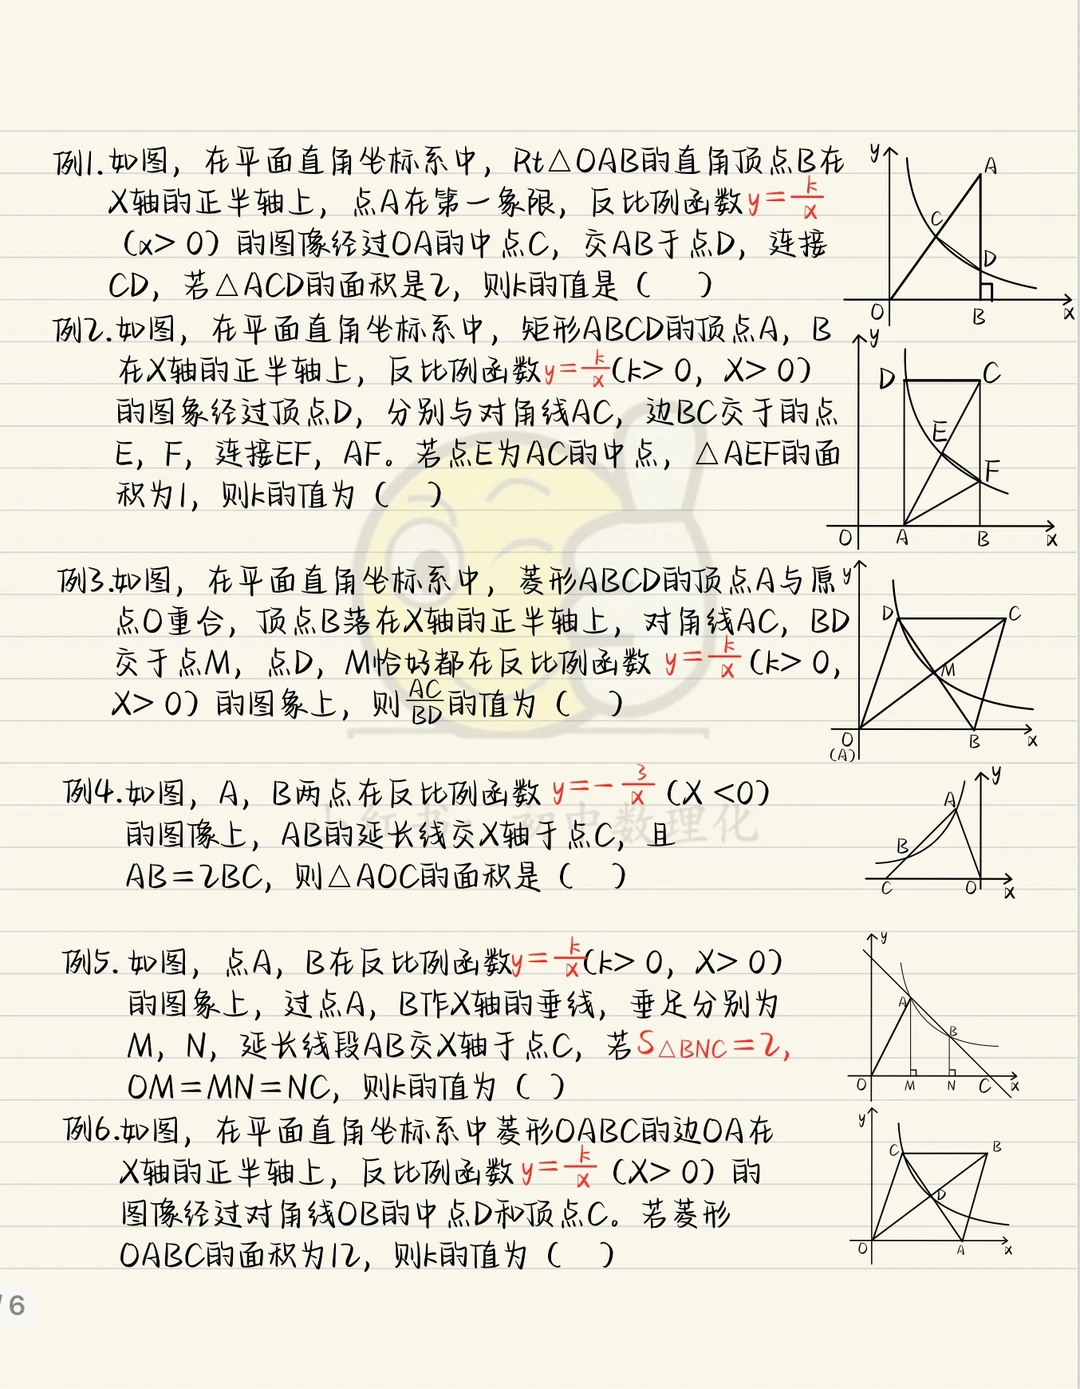 例1.如图，在平面直角坐标系中，Rt△OAB的直角顶点B在
X轴的正半轴上，点A在第一象限，反比例函数y=k/x
（x>0）的图像经过OA的中点C，交AB于点D，连接
CD，若△ACD的面积是2，则k的值是（ ）
y
A
C
D
O
B
x
例2.如图，在平面直角坐标系中，矩形ABCD的顶点A，B
在X轴的正半轴上，反比例函数y=k/x(k>0，X>0）
的图象经过顶点D，分别与对角线AC，边BC交于的点
E，F，连接EF，AF。若点E为AC的中点，△AEF的面
积为1，则k的值为（ ）
y
D
C
E
F
O
A
B
x
例3.如图，在平面直角坐标系中，菱形ABCD的顶点A与原
点O重合，顶点B落在X轴的正半轴上，对角线AC，BD
交于点M，点D，M恰好都在反比例函数 y=k/x(k>0，
X>0）的图象上，则AC/BD的值为（ ）
y
D
C
M
O
(A)
B
x
例4.如图，A，B两点在反比例函数 y=-3/x（X<0）
的图像上，AB的延长线交X轴于点C，且
AB=2BC，则△AOC的面积是（ ）
y
A
B
C
O
x
小红书：初中数理化
例5.如图，点A，B在反比例函数y=k/x(k>0，X>0）
的图象上，过点A，B作X轴的垂线，垂足分别为
M，N，延长线段AB交X轴于点C，若S△BNC=2，
OM=MN=NC，则k的值为（ ）
y
A
B
O
M
N
C
x
例6.如图，在平面直角坐标系中菱形OABC的边OA在
X轴的正半轴上，反比例函数y=k/x（X>0）的
图像经过对角线OB的中点D和顶点C。若菱形
OABC的面积为12，则k的值为（ ）
y
C
B
D
O
A
x
/6